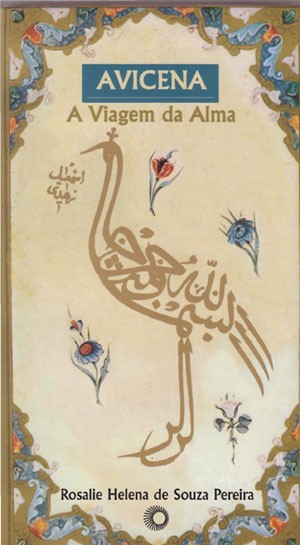 AVICENA
A Viagem da Alma
الله
Rosalie Helena de Souza Pereira